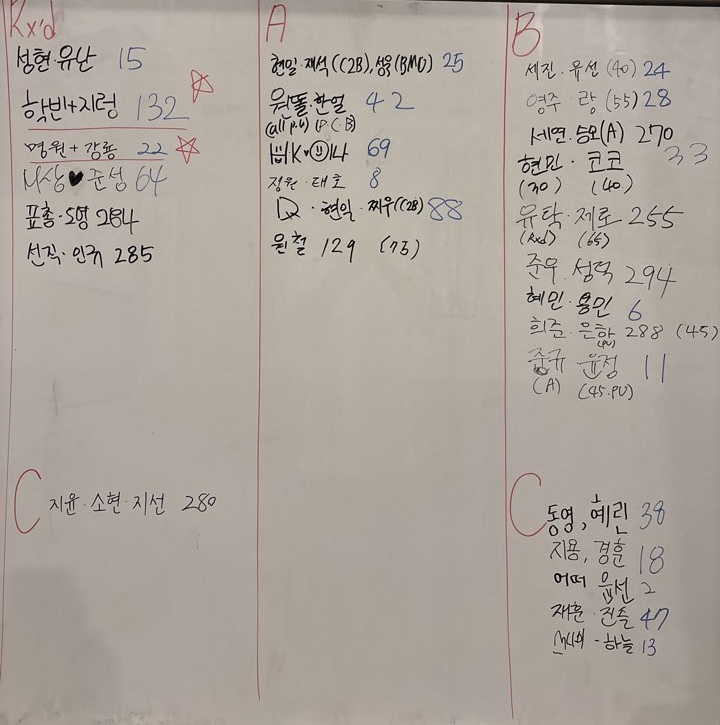 Rx'd
성현·유난 15
학빈+지렁 132
명원+강룡 22
준성 64
표총·도영 284
선직·인규 285
A
현일·재석(C2B), 성웅(BMU) 25
원똘·한얼 42
69
정원·태호 8
현익·찌우(C2B) 88
원철 129 (75)
B
세진·유선 (40) 24
영주·랑 (55) 28
세연·승모(A) 270
현민·코코 33
(30) (40)
유탁·제로 255
(Rxd) (65)
준우·성덕 294
혜민·용민 6
희준·은학 288 (45)
(PU)
중규·윤정 11
(A) (45.PU)
C 지윤·소현·지선 280
C
동영, 예린 38
지용, 경훈 18
어떠 윤선 2
재훈·진솔 47
하늘 13